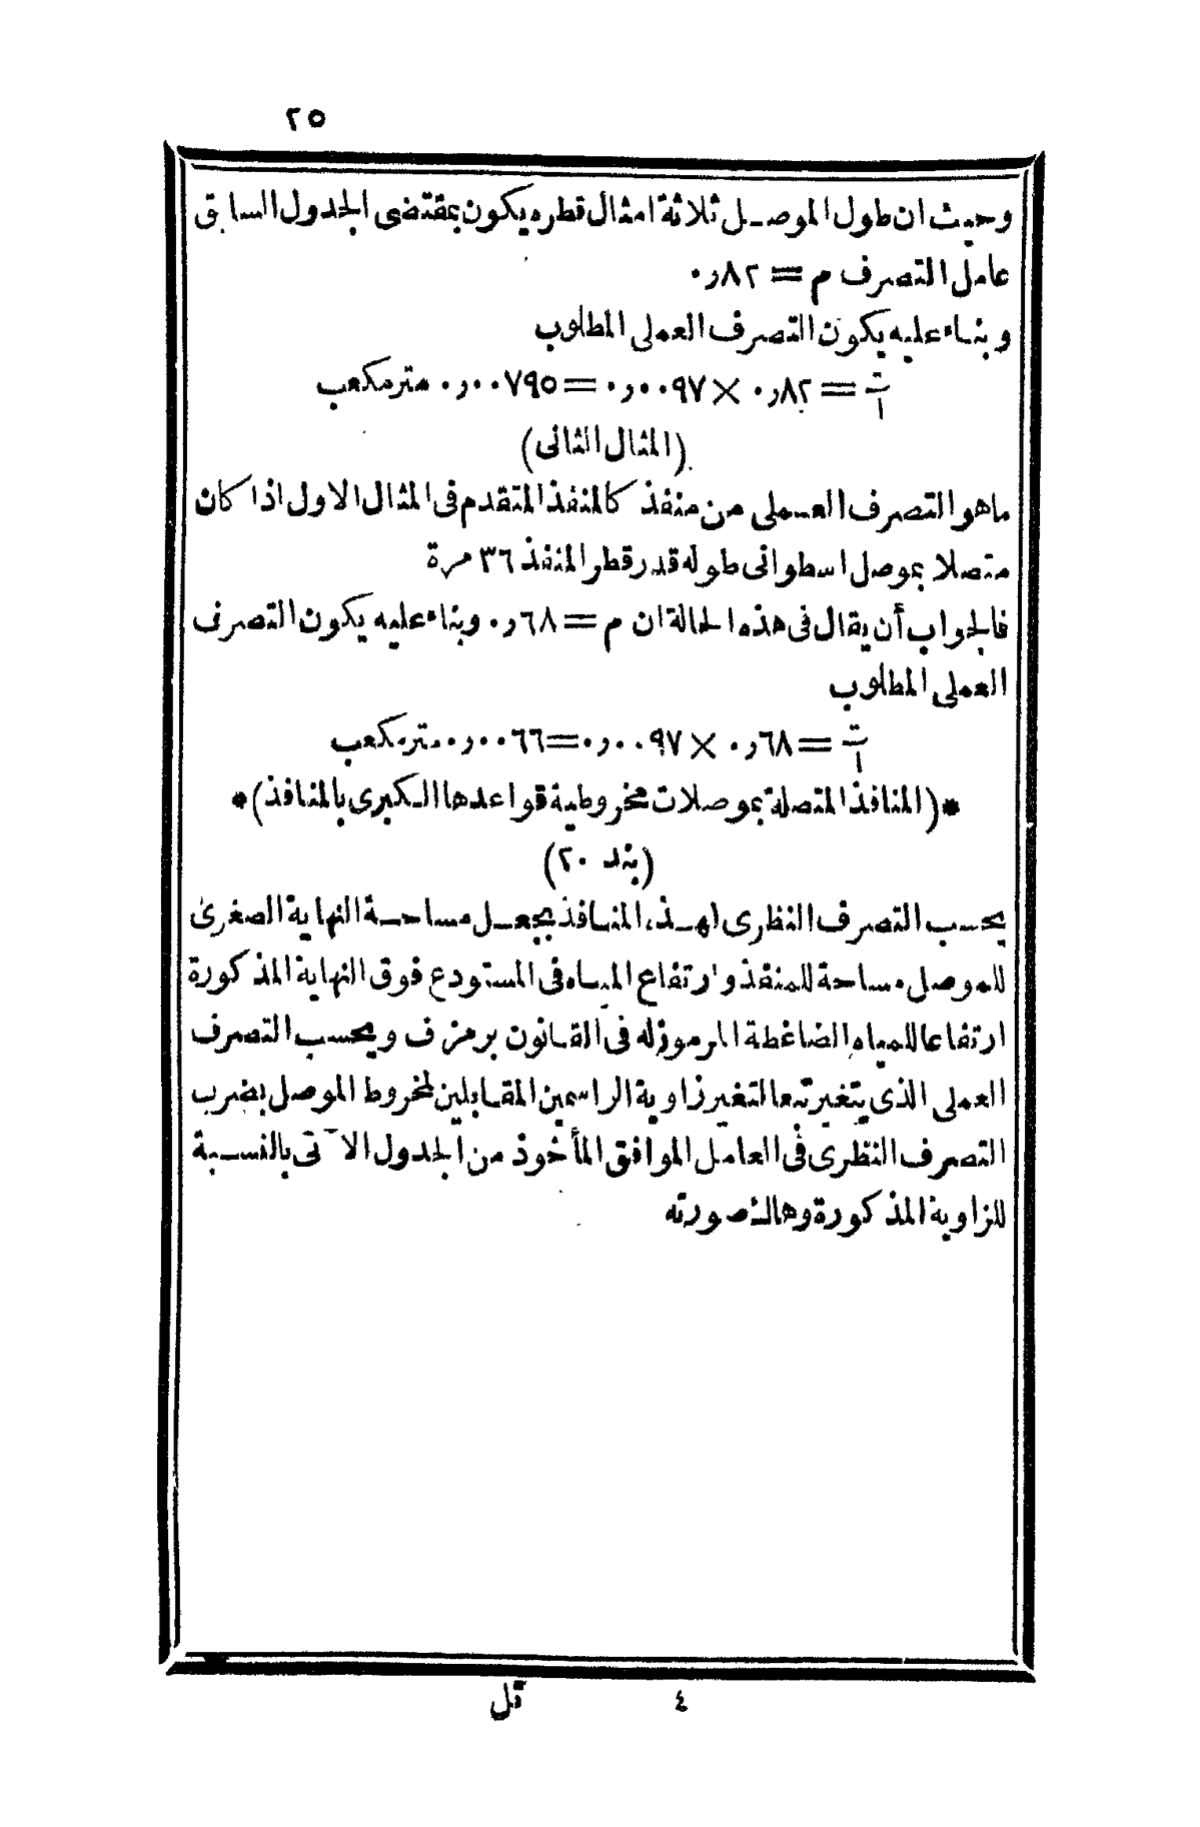 ٢٥
وحيث ان طول الموصل ثلاثة امثال قطره يكون بمقتضى الجدول السابق
عامل التصرف م = ٨٢ر٠
وبناء عليه يكون التصرف العملى المطلوب
ت/١ = ٨٢ر٠ × ٠٠٩٧ر٠ = ٠٠٧٩٥ر٠ متر مكعب
(المثال الثانى)
ماهو التصرف العملى من منفذ كالمنفذ المتقدم فى المثال الاول اذا كان
متصلا بموصل اسطوانى طوله قدر قطر المنفذ ٣٦ مرة
فالجواب أن يقال فى هذه الحالة ان م = ٦٨ر٠ وبناء عليه يكون التصرف
العملى المطلوب
ت/١ = ٦٨ر٠ × ٠٠٩٧ر٠ = ٠٠٦٦ر٠ متر مكعب
*(المنافذ المتصلة بموصلات مخروطية قواعدها الكبرى بالمنافذ)*
(بند ٢٠)
يحسب التصرف النظرى لهذه المنافذ بجعل مساحة النهاية الصغرى
للموصل مساحة للمنفذ وارتفاع المياه فى المستودع فوق النهاية المذكورة
ارتفاعا للمياه الضاغطة المرموز له فى القانون برمز ف ويحسب التصرف
العملى الذى يتغير تبعا لتغير زاوية الراسمين المقابلين لمخروط الموصل بضرب
التصرف النظرى فى العامل الموافق المأخوذ من الجدول الآتى بالنسبة
للزاوية المذكورة وهاك صورته
٤ تل